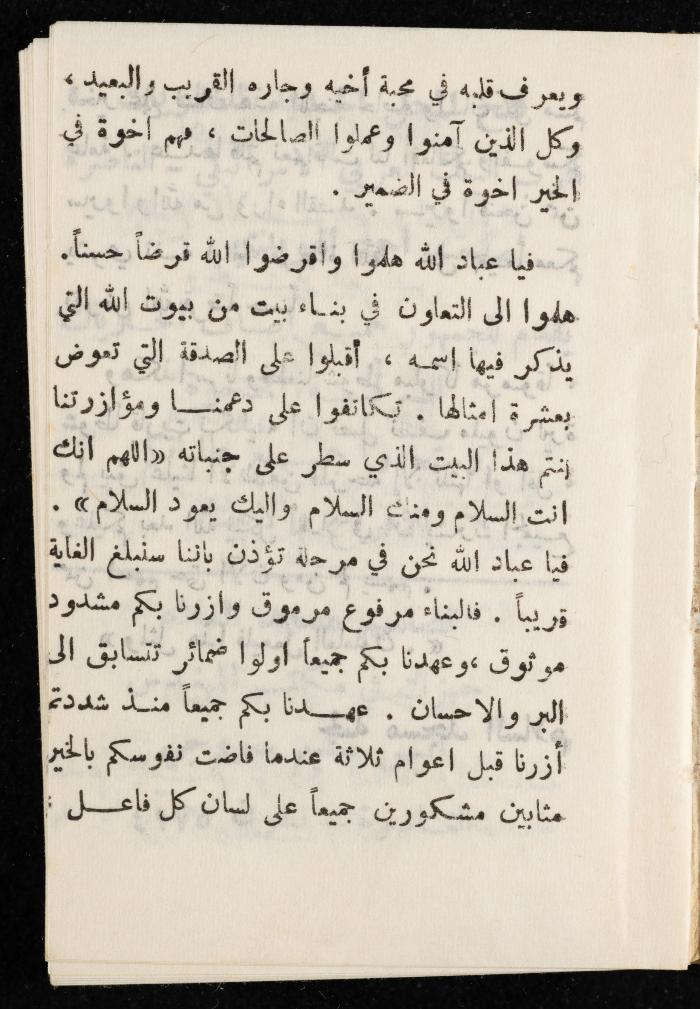 ويعرف قلبه في محبة أخيه وجاره القريب والبعيد ،
وكل الذين آمنوا وعملوا الصالحات ، فهم اخوة في
الخير اخوة في الضمير .
فيا عباد الله هلموا واقرضوا الله قرضاً حسناً.
هلموا الى التعاون في بنـاء بيت من بيوت الله التي
يذكر فيها اسمـه ، أقبلوا على الصدقة التي تعوض
بعشرة امثالها . تكاتفوا على دعمنــا ومؤازرتنا
لنتم هذا البيت الذي سطر على جنباته «اللهم انك
انت السلام ومنك السلام واليك يعود السلام» .
فيا عباد الله نحن في مرحلة تؤذن باننا سنبلغ الغاية
قريباً . فالبناء مرفوع مرموق وازرنا بكم مشدود
موثوق ،وعهدنا بكم جميعاً اولوا ضمائر تتسابق الى
البر والاحسان . عهــدنا بكم جميعاً منـذ شددتم
أزرنا قبل اعوام ثلاثة عندما فاضت نفوسكم بالخير
مثابين مشكورين جميعاً على لسان كل فاعــل :